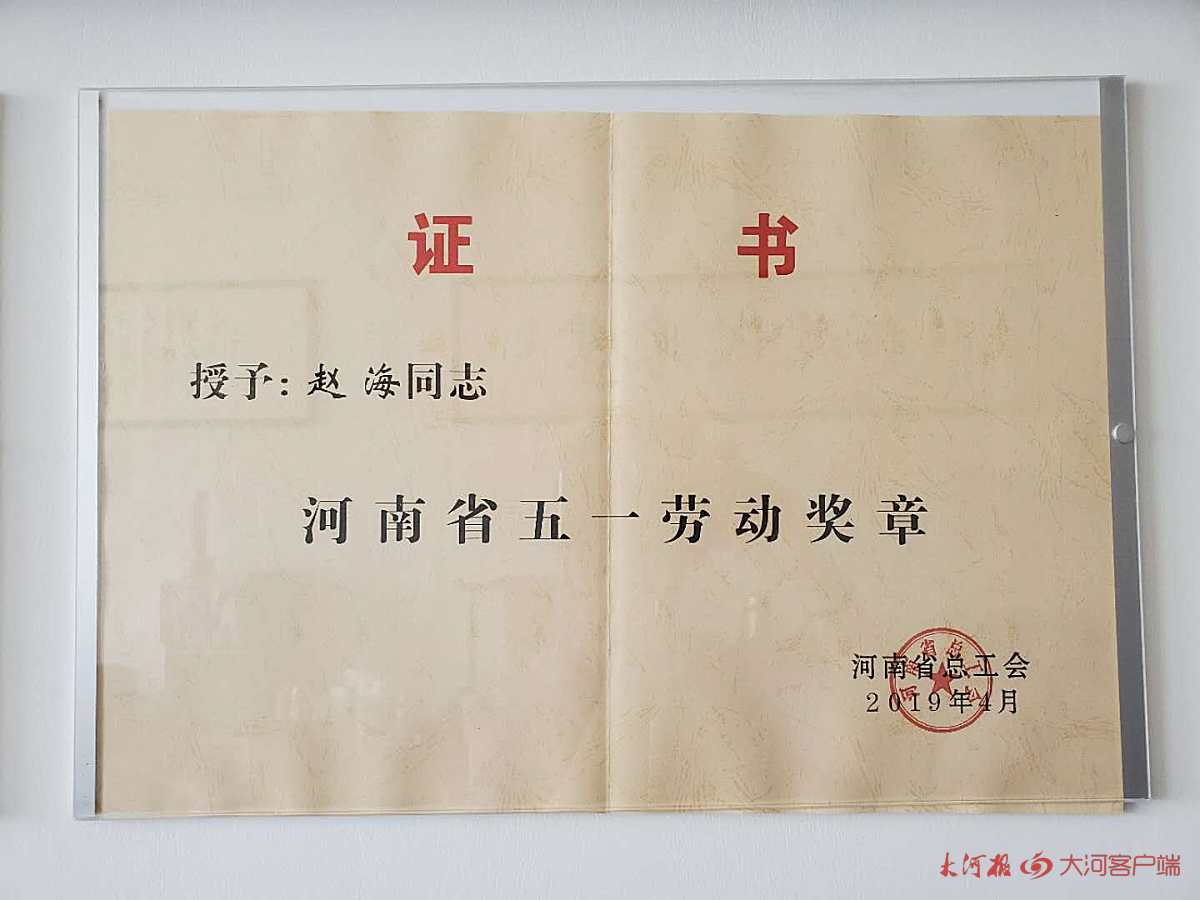 证书
授予：赵海同志
河南省五一劳动奖章
河南省总工会
河南省总工会
2019年4月
大河报 大河客户端